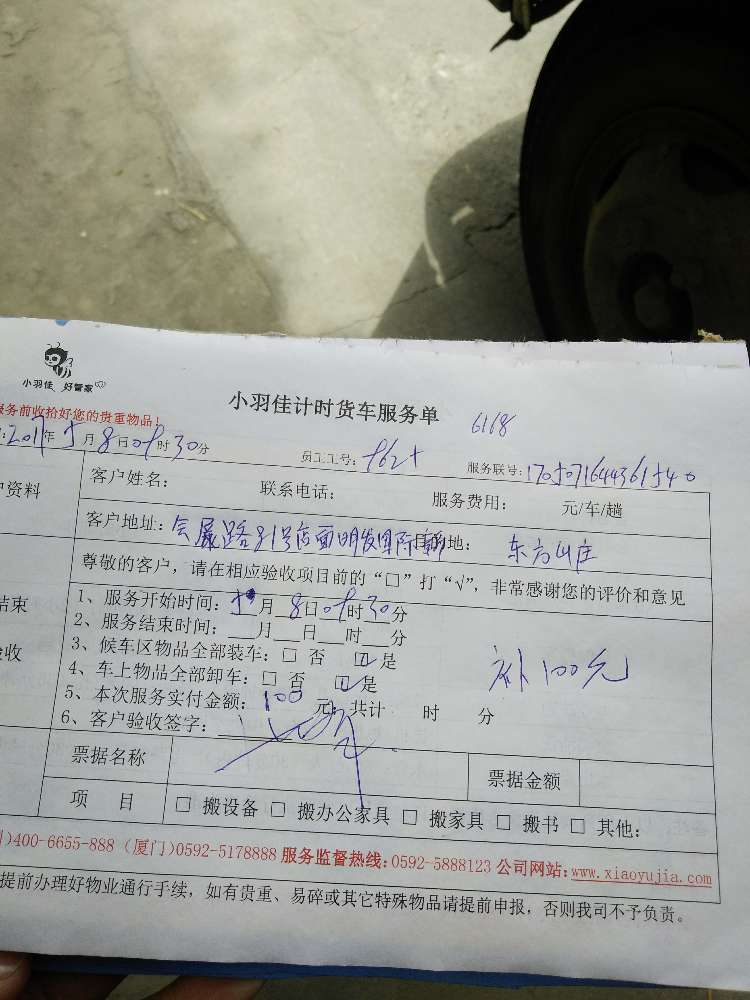 小羽佳 好管家
小羽佳计时货车服务单 6168
务前收拾好您的贵重物品!
2017年5月8日09时30分 员工工号: 服务联号:
户资料 客户姓名: 联系电话: 服务费用: 元/车/趟
客户地址:会展路 号店面明发国际 目的地: 东方山庄
尊敬的客户,请在相应验收项目前的“□”打“√”,非常感谢您的评价和意见
结束
验收
1、服务开始时间:5月8日09时30分
2、服务结束时间:___月___日___时___分
3、候车区物品全部装车:□ 否 ☑是
4、车上物品全部卸车:□ 否 ☑是
补100元
5、本次服务实付金额:100元,共计 时 分
6、客户验收签字:
票据名称 票据金额
项 目 □ 搬设备 □ 搬办公家具 □ 搬家具 □ 搬书 □ 其他:
)400-6655-888 (厦门)0592-5178888 服务监督热线:0592-5888123 公司网站:www.xiaoyujia.com
提前办理好物业通行手续,如有贵重、易碎或其它特殊物品请提前申报,否则我司不予负责。